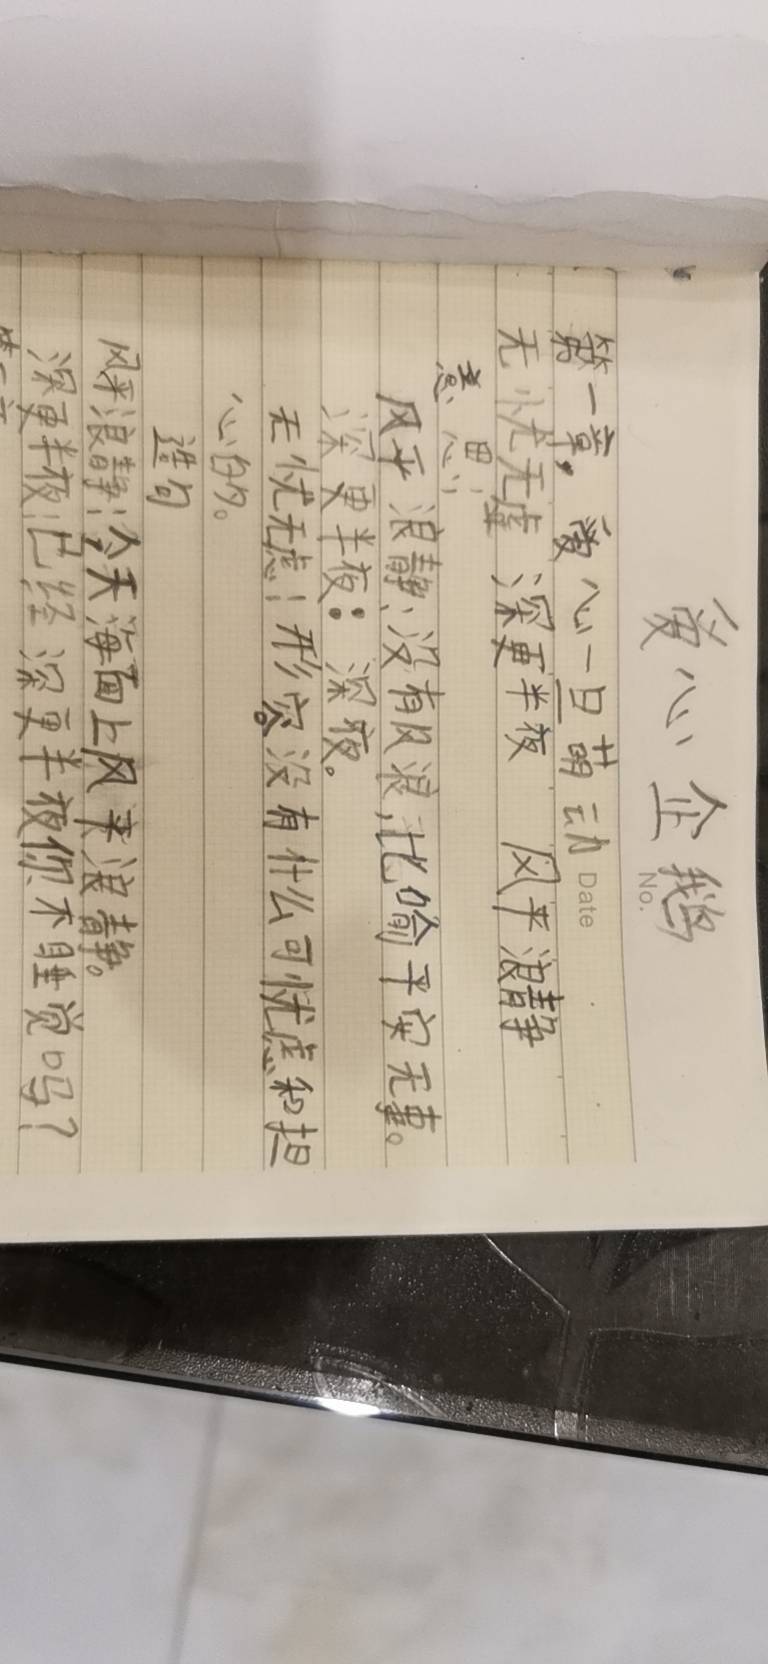 爱心企鹅
No.
Date
第一章,爱心一旦萌动
无忧无虑 深更半夜 风平浪静
意思:
风平浪静:没有风浪,比喻平安无事。
深更半夜:深夜。
无忧无虑:形容没有什么可忧虑和担
心的。
造句
风平浪静:今天海面上风平浪静。
深更半夜:已经深更半夜你不睡觉吗?